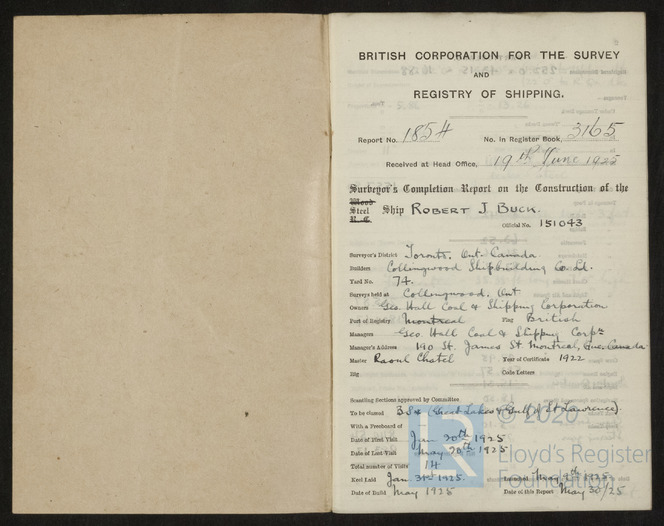 BRITISH CORPORATION FOR THE SURVEY
AND
REGISTRY OF SHIPPING.
Report No. 1854 No. in Register Book, 3165
Received at Head Office, 19th June 1925
Surveyor's Completion Report on the Construction of the
Wood
Steel Ship ROBERT J. BUCK.
Official No. 151043
Surveyor's District Toronto, Ont. Canada
Builders Collingwood Shipbuilding Co. Ld.
Yard No. 74.
Surveys held at Collingwood, Ont
Owners Geo. Hall Coal & Shipping Corporation
Port of Registry Montreal Flag British
Managers Geo. Hall Coal & Shipping Corpn
Manager's Address 190 St. James St Montreal, Que. Canada
Master Raoul Chatel Year of Certificate 1922
Rig Code Letters
Scantling Sections approved by Committee
To be classed B.S* (Great Lakes & Gulf of St Lawrence)
With a Freeboard of
Date of First Visit Jan. 20th 1925
Date of Last Visit May 20th 1925
Total number of Visits 14
Keel Laid Jan. 31st 1925. Launched May 9th 1925.
Date of Build May 1925 Date of this Report May 30/25
© 2020
Lloyd's Register
Foundation
LR